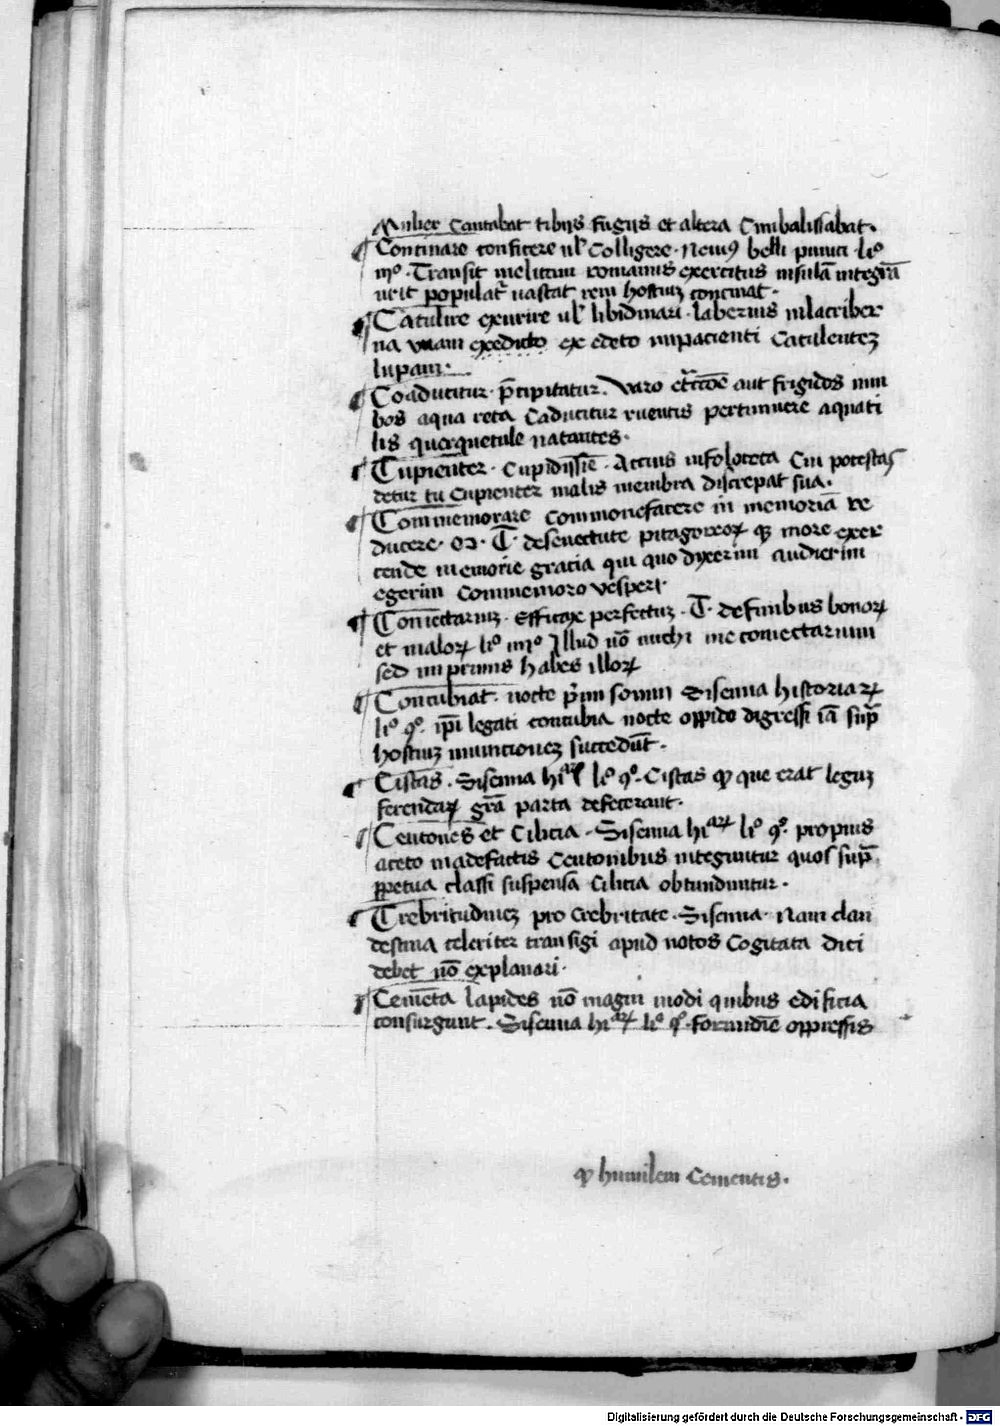 Mulier Cantabat tibiis fugiis et altera Cimbalissabat.
Continare conficere ul' Colligere. Neviꝰ belli punici li°
iii°. Transit melitam romanus exercitus insulā integrā
urit populat' vastat rem hostiuꝫ concinat.
Catulire exurire ul' libidinari. laberius inlacriber
na vnam exedicto ex edeto inpacienti Catulenteꝫ
lupam.
Coaducitur. p̄cipitatur. Varo aut frigidos nim
bos aqua Caducitur ruentis pertimuere aquati
lis querquetule natantes.
Cupienter. Cupidissīe. Accius Cui potestas
detur tu Cupienter malis membra discrepat sua.
Commemorare Commonefacere in memoriā re
ducere. M. T. de senectute pitagoreoꝝ qꝫ more exer
cende memorie gracia qui quo dixerim audierim
egerim Commemoro vesperi.
perfectuꝫ. T. de finibus bonoꝝ
et maloꝝ li° iii° Illud nō michi
sed inprimis habes illoꝝ
Concubiat. nocte p̄m somni Sisenna historiaꝝ
li° q°. ip̄i legati concubia nocte oppido digressi iā sup̄
hostiuꝫ municioneꝫ succedūt.
Cistas. Sisenna li° q°. Cistas que erat leguꝫ
ferendaꝝ grā parta defecerant.
Centones et Cilicia. Sisenna li° q°. propius
aceto madefactis Centonibus integuntur quos sup̄
ꝑpetua classi suspensa Cilicia obtunduntur.
Crebritudineꝫ pro Crebritate. Sisenna. Nam clan
destina celeriter transigi apud notos Cogitata dici
debet nō explanari.
Cemēta lapides nō magni modi quibus edificia
consurgunt. Sisenna li° q°. oppressis
humilem Cementis.
Digitalisierung gefördert durch die Deutsche Forschungsgemeinschaft - DFG